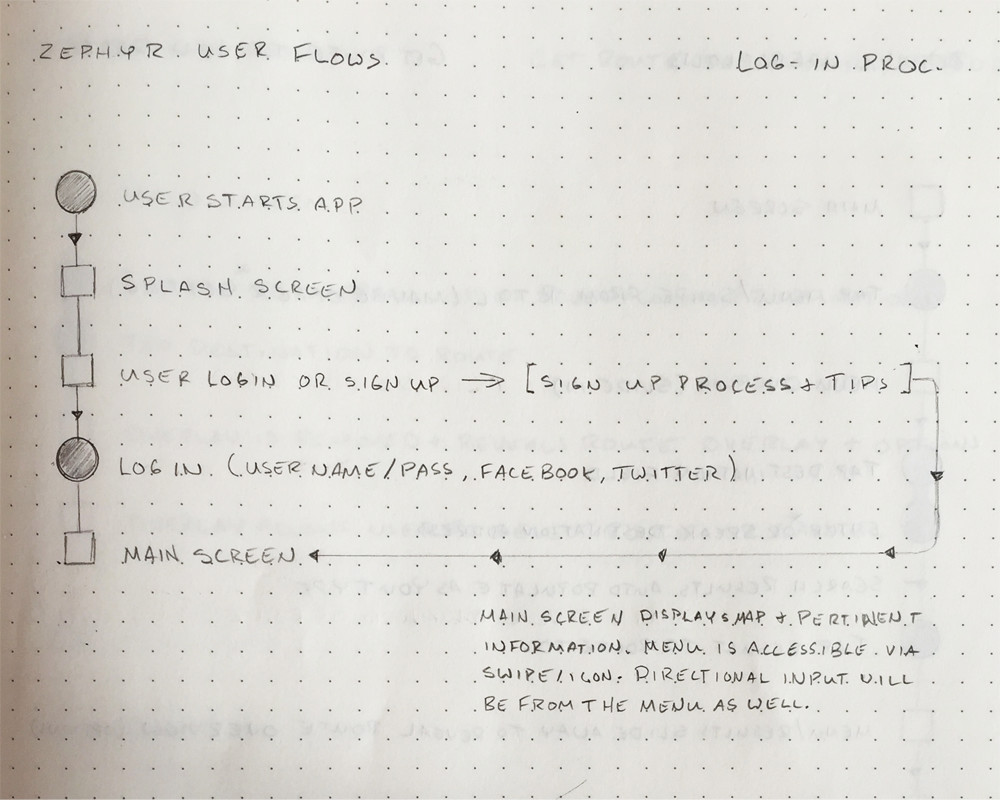 ZEPHYR USER FLOWS
LOG-IN PROC.
USER STARTS APP
SPLASH SCREEN
USER LOGIN OR SIGN UP → [SIGN UP PROCESS + TIPS]
LOG IN (USER NAME/PASS, FACEBOOK, TWITTER)
MAIN SCREEN
MAIN SCREEN DISPLAYS MAP + PERTINENT
INFORMATION. MENU IS ACCESSIBLE VIA
SWIPE/ICON. DIRECTIONAL INPUT WILL
BE FROM THE MENU AS WELL.